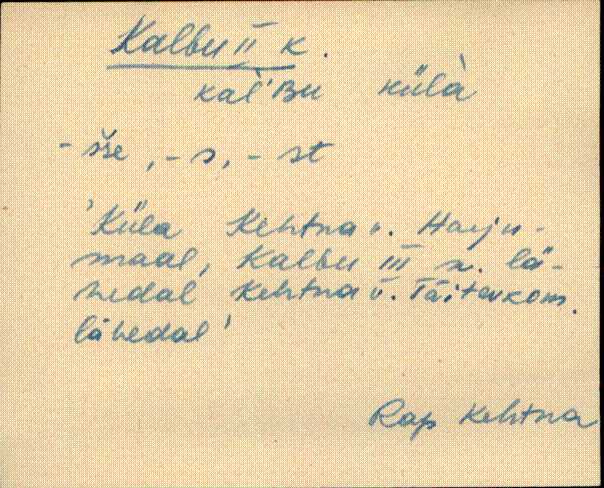 Kalbu II k.
kal'Bu külà
- sse, - s, - st
'Küla Kehtna v. Harju-
maal, Kalbu III n. lä-
hedal Kehtna v. Täitevkom.
lähedal'
Rap Kehtna